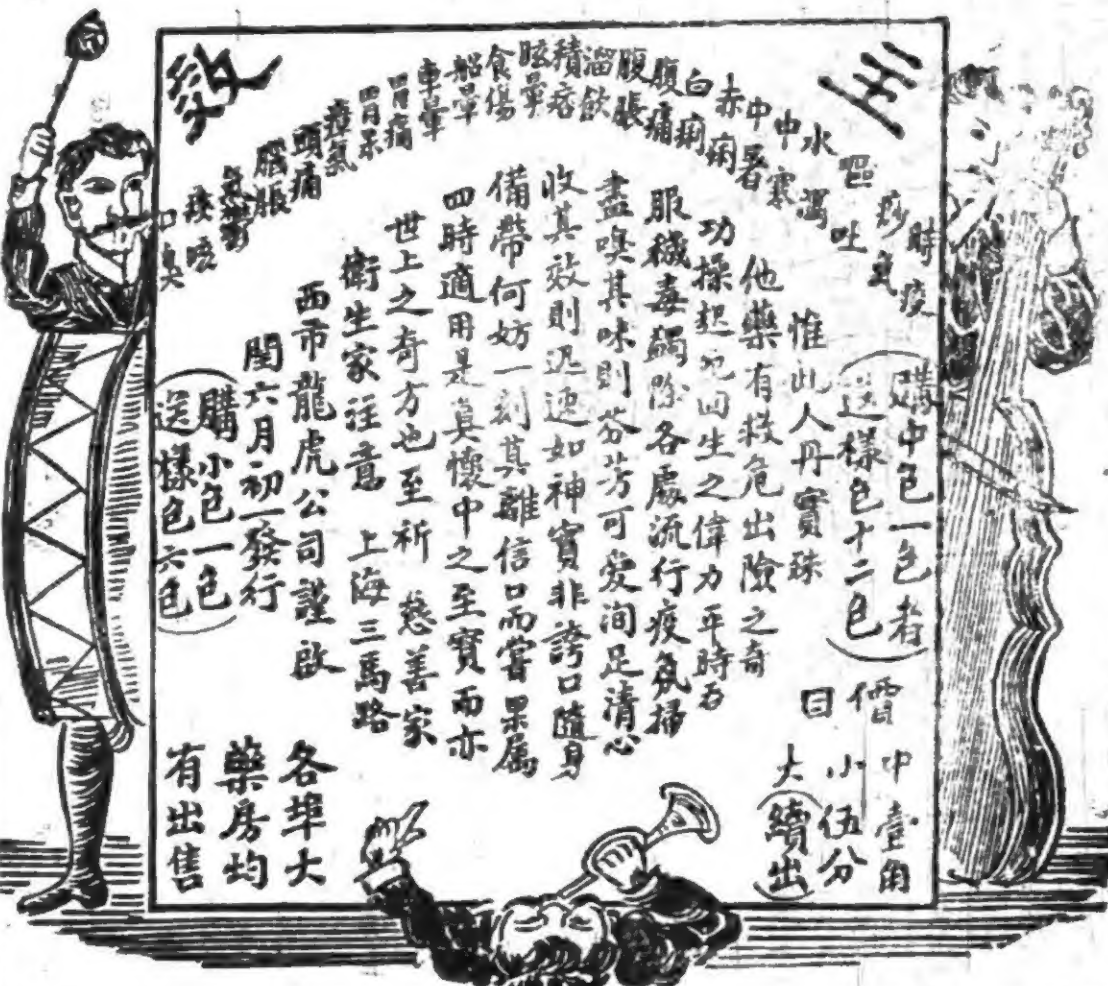 主
治
時疫
痧氣
嘔吐
水瀉
中寒
中暑
赤痢
白痢
腹痛
腹脹
溜飲
積痞
眩暈
食傷
船暈
車暈
胃痛
胃呆
瘴氣
頭痛
腦脹
痰咳
口臭
購中包一包者
送樣包十二包
惟此人丹寶珠
他藥有救危出險之奇
功操起死回生之偉力平時若
服穢毒蠲除各處流行疫氛掃
盡嗅其味則芬芳可愛洵足清心
收其效則迅速如神實非誇口隨身
備帶何妨一刻其離信口而嘗果屬
四時適用是真懷中之至寶而亦
世上之奇方也至祈 慈善家
衛生家注意 上海三馬路
西市龍虎公司謹啟
閏六月初一發行
購小包一包
送樣包六包
價目
中壹角
小伍分
大續出
各埠大
藥房均
有出售